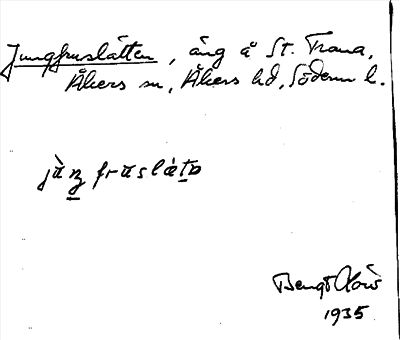 Jungfruslätten, äng å St. Trana,
Åkers sn, Åkers hd, Söderm l.
jùŋ frusläta
Bengt Howi
1935